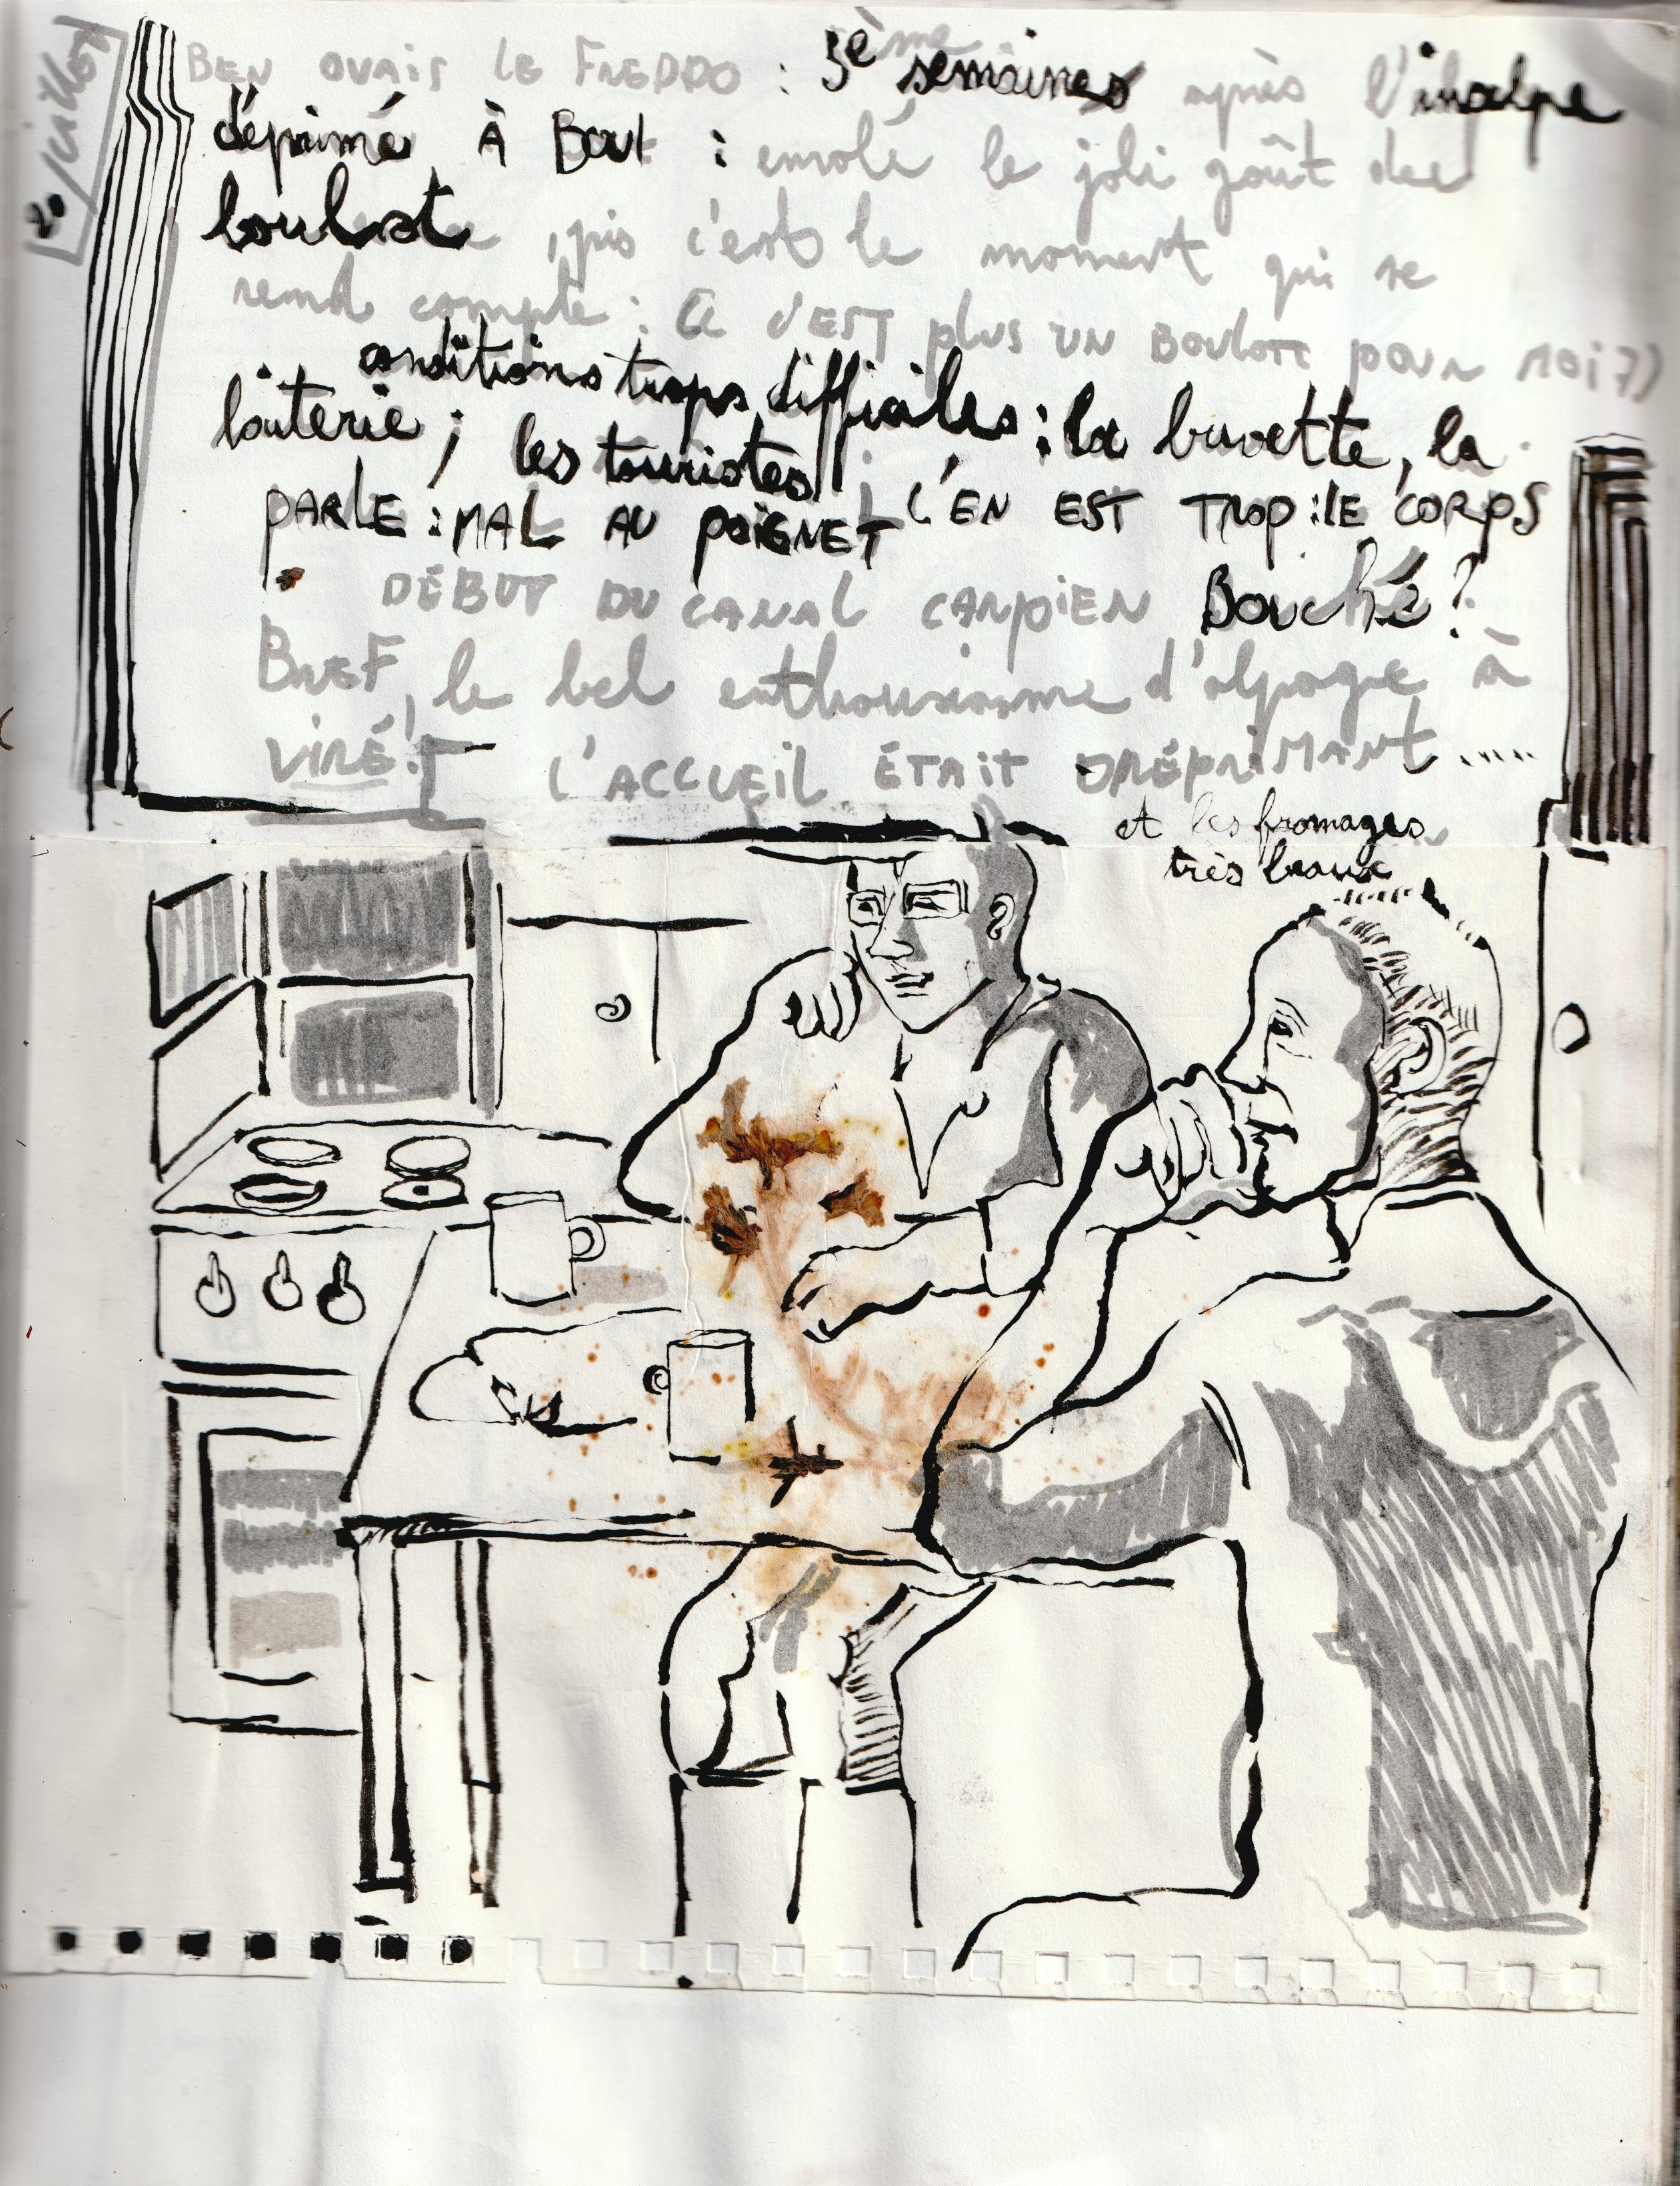 20/juillet
BEN OUAIS LE FREDDO : 3ème semaines après l'inalpe
déprimé À Bout : envolé le joli goût des
boulots, pis c'est le moment qui se
rend compte : Ce N'EST plus UN Boulot pour MOI ?)
conditions trops difficiles : la buvette, la
laiterie ; les touristes ; C'EN EST TROP : lE CORPS
PARLE : MAL AU POIGNET
DÉBUT DU CANAL CARPIEN Bouché ?
BREF, le bel enthousiasme d'alpage à
VIRÉ ! L'ACCUEIL ÉTAIT DRÉPRIMANT.....
et les fromages
très beaux